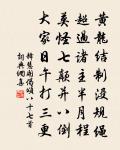 黄龙结制没规绳
超过诸方半月程
莫怪七颠并八倒
大家日午打三更
释慧开偈颂八十七首
词典网